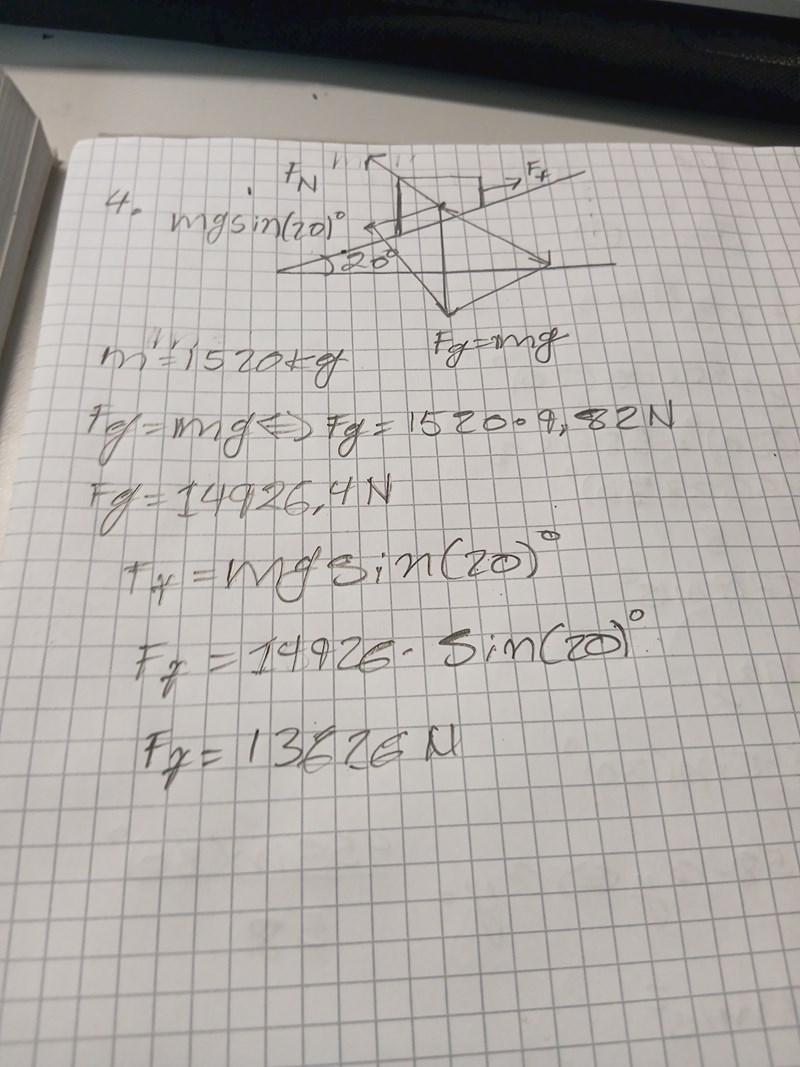 F_N
F_f
4. mgsin(20)°
20°
Fg=mg
m=1520kg
Fg=mg⇔Fg=1520·9,82N
Fg=14926,4N
F_f=mgsin(20)°
F_f=14926·Sin(20)°
F_f=13626N